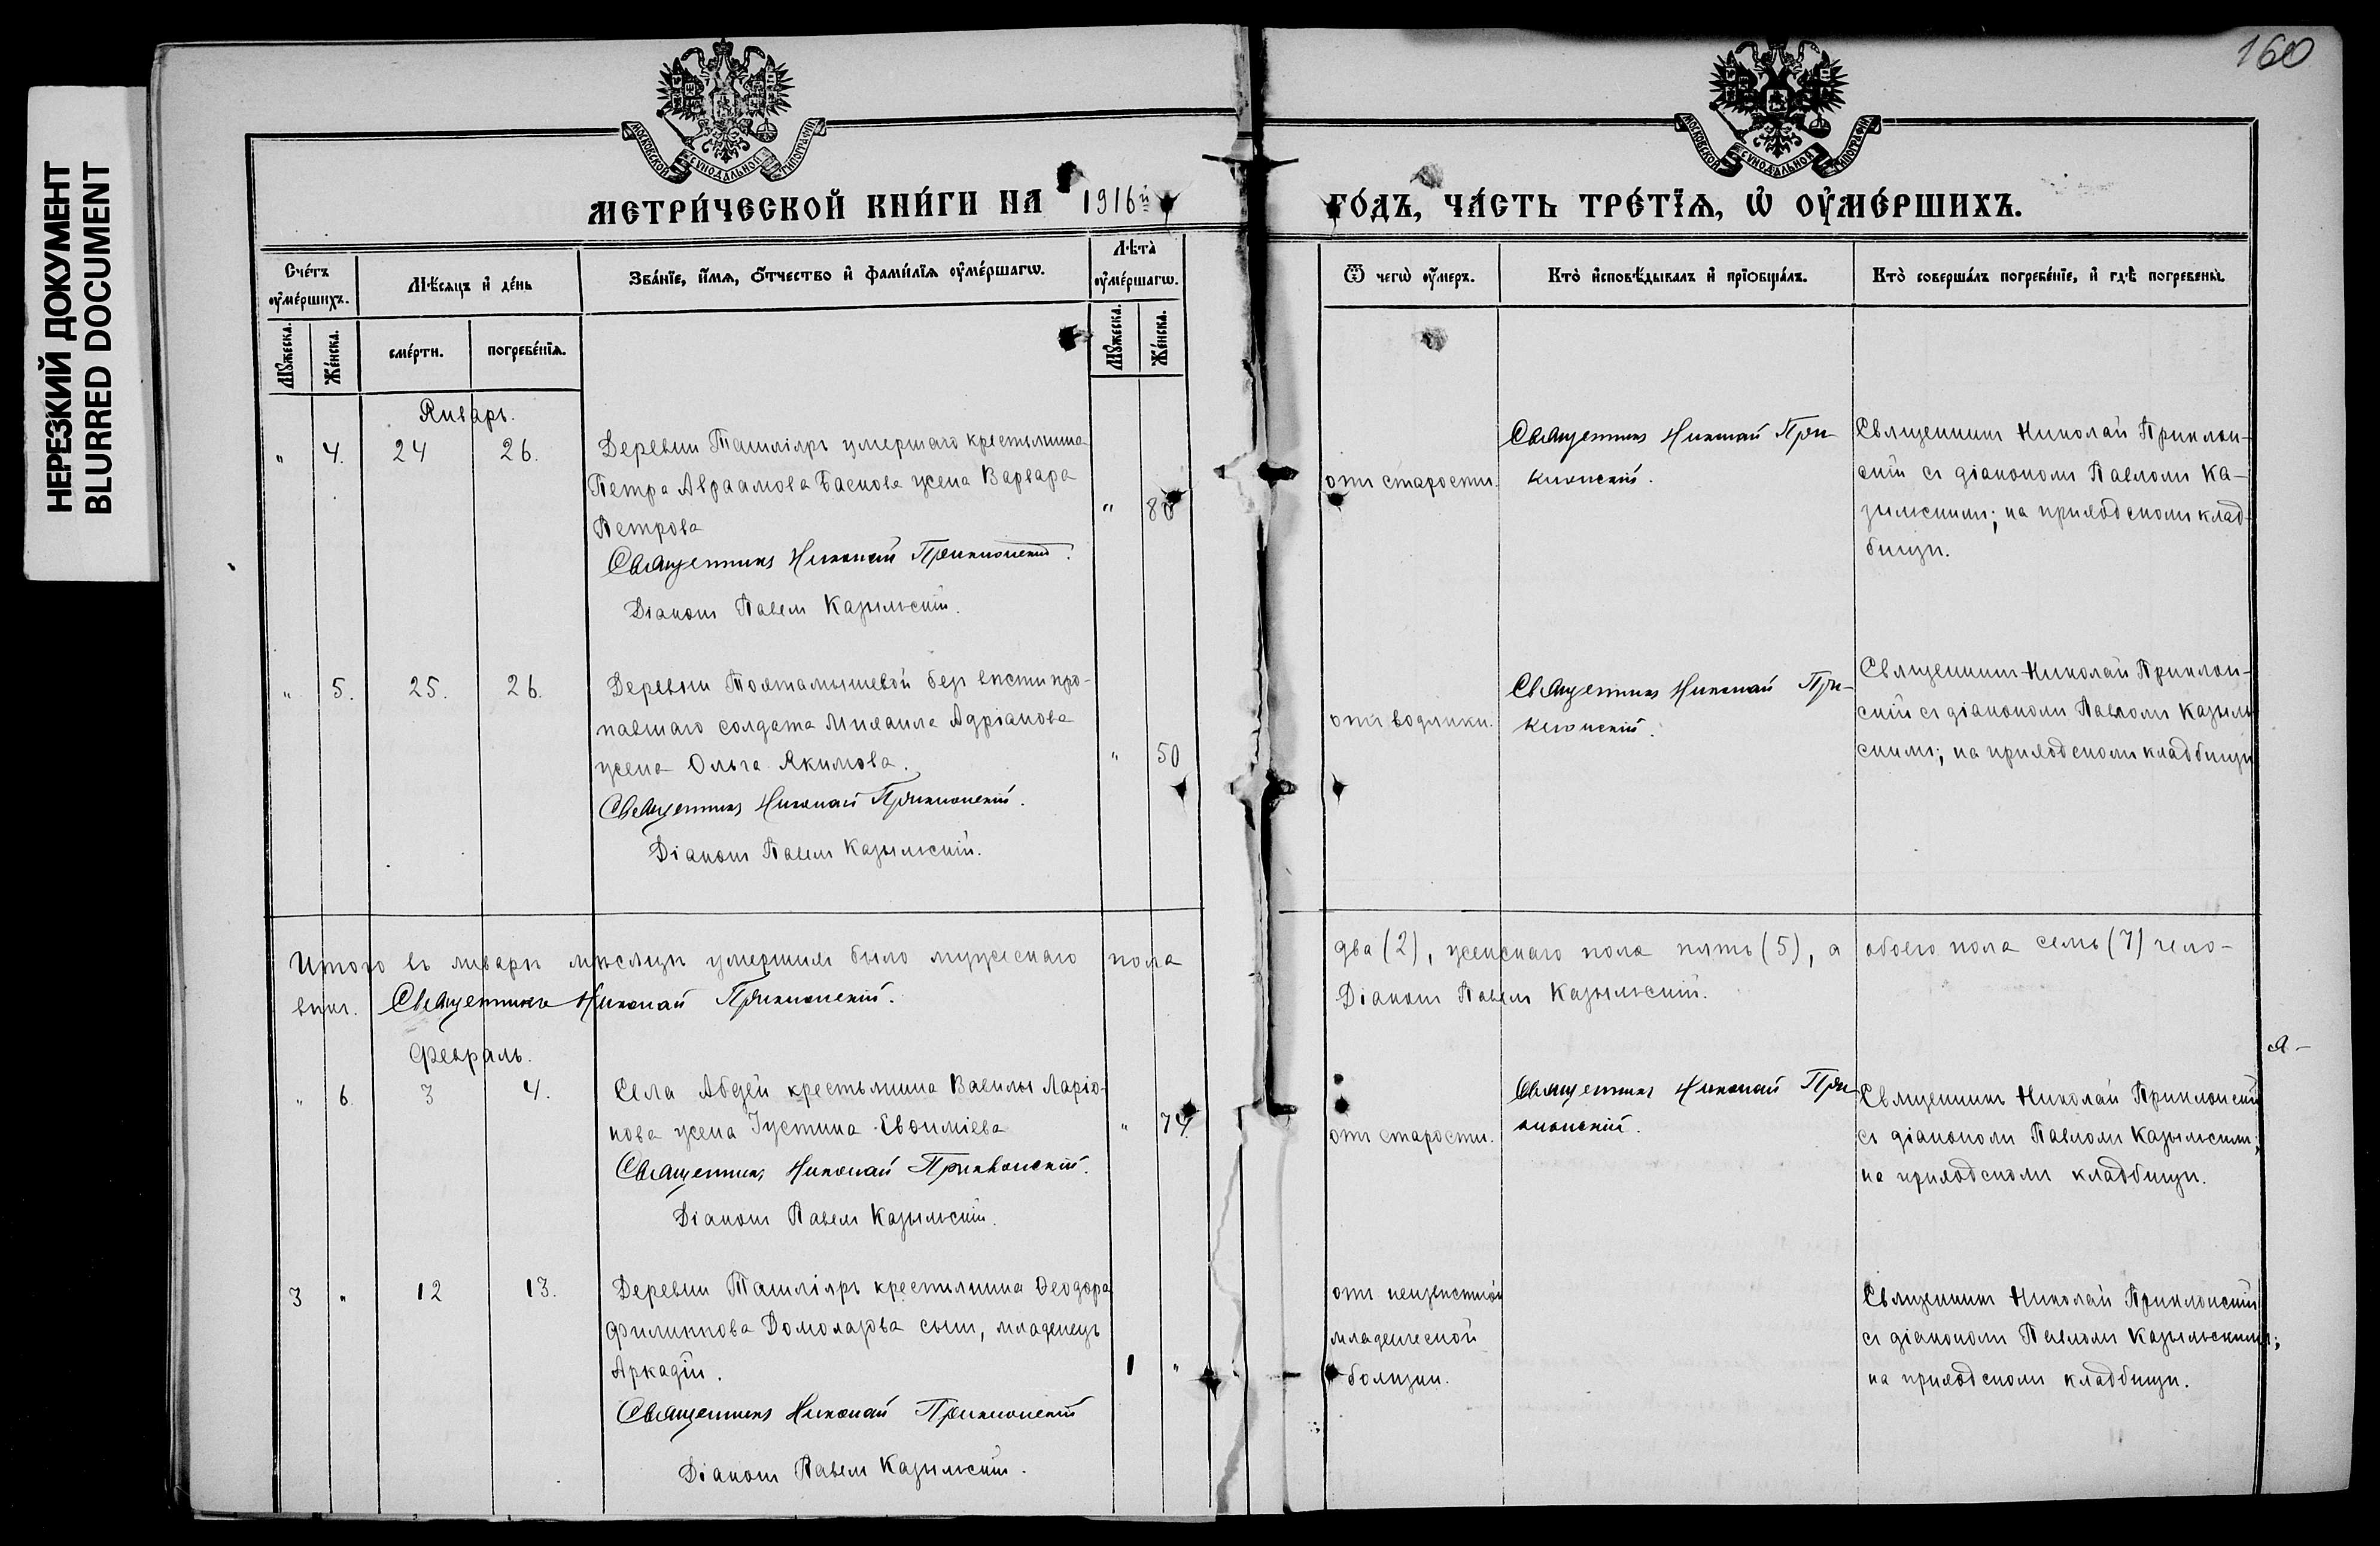 НЕРЕЗКИЙ ДОКУМЕНТ
BLURRED DOCUMENT
160
МОСКОВСКОЙ СѴНОДАЛЬНОЙ ТИПОГРАФІИ
МОСКОВСКОЙ СѴНОДАЛЬНОЙ ТИПОГРАФІИ
МЕТРИ́ЧЕСКОЙ КНИ́ГИ НА 1916й
ГО́ДЪ, ЧА́СТЬ ТРЕ́ТЇѦ, Ѡ҆ ОУ҆МЕ́РШИХЪ.
Сче́тъ оу҆ме́ршихъ.
Мѣ́сяцъ и҆ де́нь
Зва́нїе, и҆́мѧ, ѻ҆́тчество и҆ фамы́лїѧ оу҆ме́ршагѡ.
Лѣ́та оу҆ме́ршагѡ.
Ѿ чегѡ̀ оу҆́меръ.
Кто̀ и҆сповѣ́дывалъ и҆ прїѻбща́лъ.
Кто̀ соверша́лъ погребе́нїе, и҆ гдѣ̀ погребены̀.
Мꙋ́жеска.
Же́нска.
сме́рти.
погребе́нїѧ.
Мꙋ́жеска.
Же́нска.
Январь.
" 4. 24 26.
Деревни Ташліяръ умершаго крестьянина
Петра Авраамова Баскова жена Варвара
Петрова
" 80
Священникъ Николай Приклонскій.
Діаконъ Павелъ Казыльскій.
отъ старости.
Священникъ Николай При-
клонскій.
Священникъ Николай Приклон-
скій съ діакономъ Павломъ Ка-
зыльскимъ; на приходскомъ клад-
бищѣ.
" 5. 25. 26.
Деревни Тохтамышевой безъ вѣсти про-
павшаго солдата Михаила Адріанова
жена Ольга Якимова.
" 50
Священникъ Николай Приклонскій.
Діаконъ Павелъ Казыльскій.
отъ водянки.
Священникъ Николай При-
клонскій.
Священникъ Николай Приклон-
скій съ діакономъ Павломъ Казыль-
скимъ; на приходскомъ кладбищѣ
Итого въ январѣ мѣсяцѣ умершихъ было мужескаго пола два (2), женскаго пола пять (5), а обоего пола семь (7) чело-
вѣкъ. Священникъ Николай Приклонскій. Діаконъ Павелъ Казыльскій.
Февраль.
" 6. 3 4.
Села Абдей крестьянина Вавилы Ларіо-
нова жена Іустина Евѳиміева
" 74.
Священникъ Николай Приклонскій.
Діаконъ Павелъ Казыльскій.
отъ старости.
Священникъ Николай При-
клонскій.
Священникъ Николай Приклонскій
съ діакономъ Павломъ Казыльскимъ;
на приходскомъ кладбищѣ.
3 " 12 13.
Деревни Ташліяръ крестьянина Ѳеодора
Филиппова Домолазова сынъ, младенецъ
Аркадій.
1 "
Священникъ Николай Приклонскій
Діаконъ Павелъ Казыльскій.
отъ неизвѣстной
младенческой
болѣзни.
Священникъ Николай Приклонскій
съ діакономъ Павломъ Казыльскимъ;
на приходскомъ кладбищѣ.